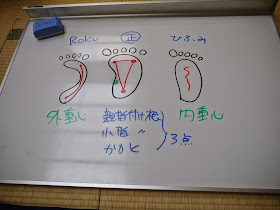 Roku 正 ひふみ
外重心 親指付け根 円重心
小指 〃
かかと
3点